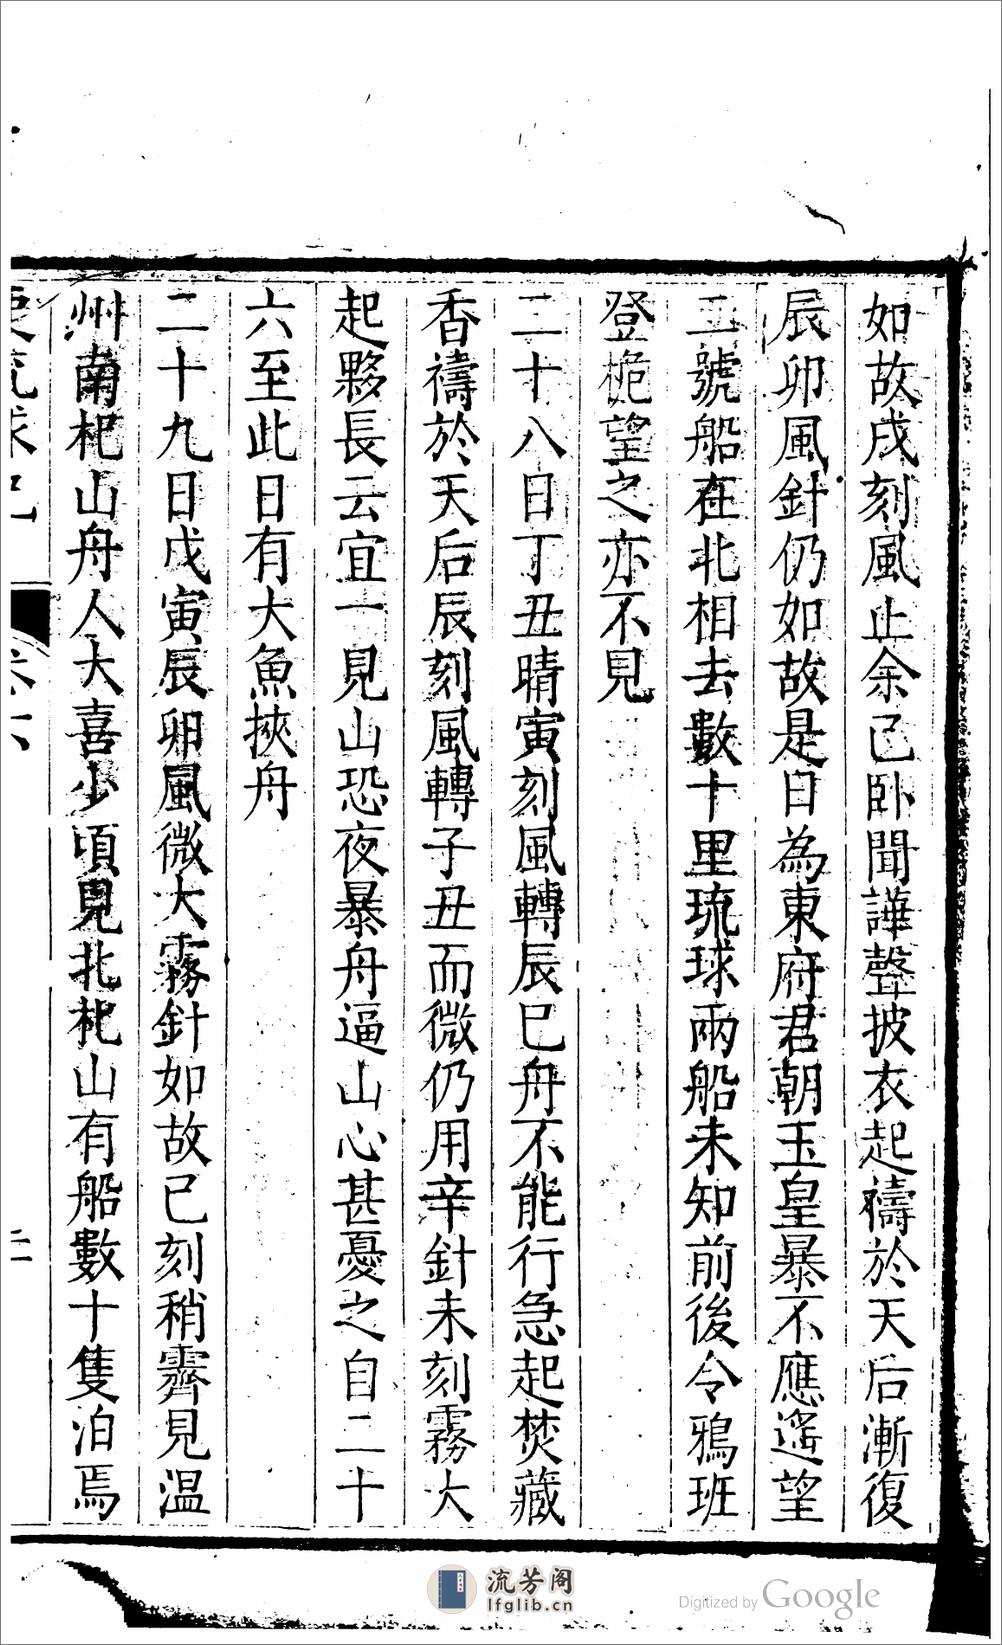 如故戌刻風止余已卧聞譁聲披衣起禱於天后漸復
辰卯風針仍如故是日為東府君朝玉皇暴不應遙望
二號船在北相去數十里琉球兩船未知前後令鴉班
登桅望之亦不見
二十八日丁丑晴寅刻風轉辰巳舟不能行急起焚藏
香禱於天后辰刻風轉子丑而微仍用辛針未刻霧大
起夥長云宜一見山恐夜暴舟逼山心甚憂之自二十
六至此日有大魚挾舟
二十九日戊寅辰卯風微大霧針如故已刻稍霽見温
州南杞山舟人大喜少頃見北杞山有船數十隻泊焉
使琉球記
卷六
二
流芳阁
lfglib.cn
Digitized by Google